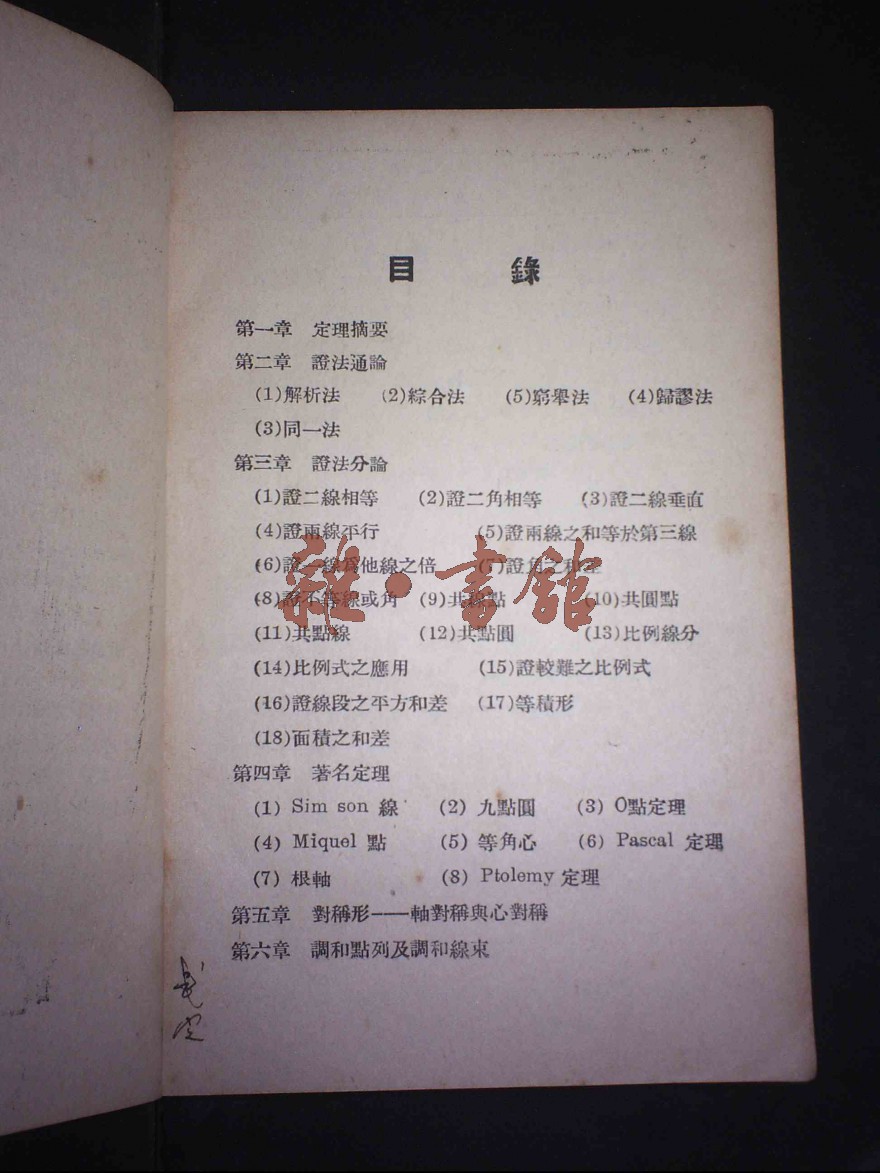 目 錄
第一章 定理摘要
第二章 證法通論
(1)解析法 (2)綜合法 (5)窮舉法 (4)歸謬法
(3)同一法
第三章 證法分論
(1)證二線相等 (2)證二角相等 (3)證二線垂直
(4)證兩線平行 (5)證兩線之和等於第三線
(6)證一線爲他線之倍 (7)證角之和差
(8)證不等線或角 (9)共線點 (10)共圓點
(11)共點線 (12)共點圓 (13)比例線分
(14)比例式之應用 (15)證較難之比例式
(16)證線段之平方和差 (17)等積形
(18)面積之和差
第四章 著名定理
(1) Sim son 線 (2) 九點圓 (3) O點定理
(4) Miquel 點 (5) 等角心 (6) Pascal 定理
(7) 根軸 (8) Ptolemy 定理
第五章 對稱形——軸對稱與心對稱
第六章 調和點列及調和線束
雜·書館